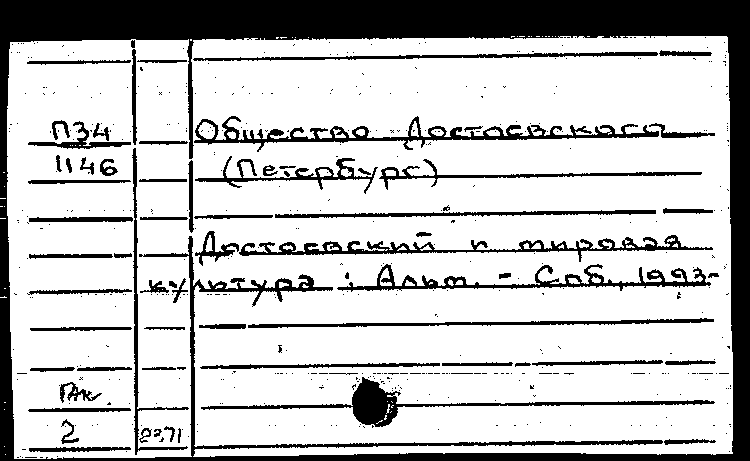 П34 Общество Достоевского
1146 (Петербург)
Достоевский и мировая
культура : Альм. - Спб., 1993-
2 2371